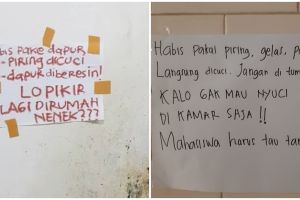 bis pake dapur
- PIRING DICUCI
- dapur diberesin!
LO PIKIR
LAGI DIRUMAH
NENEK???
Habis pakai piring, gelas,
Langsung dicuci. Jangan di
KALO GAK MAU NYUCI
DI KAMAR SAJA !!
Mahasiswa harus tau